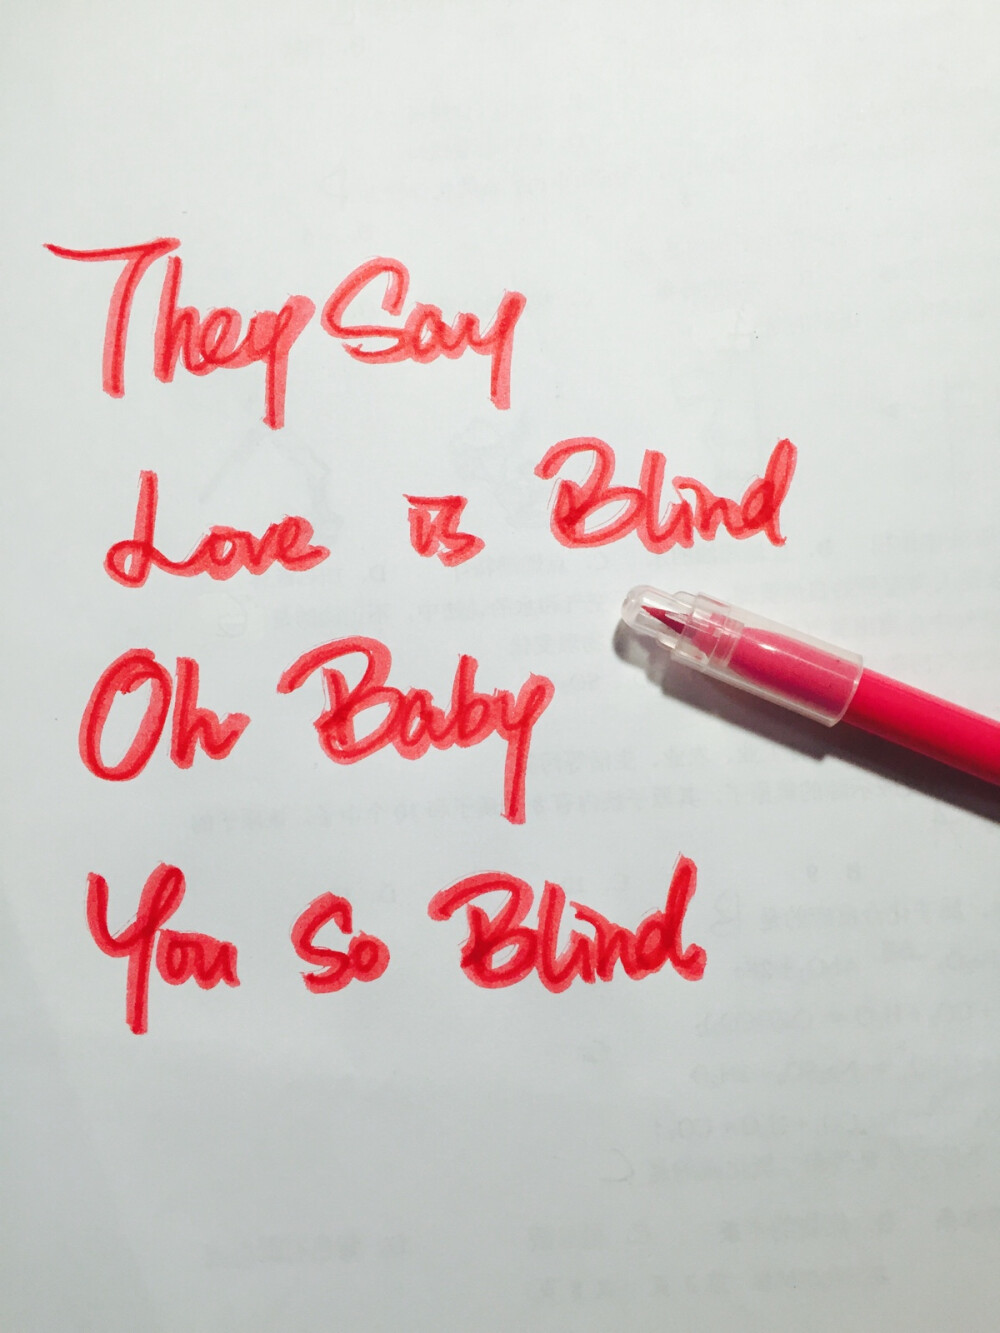 They Say
Love is Blind
Oh Baby
You So Blind